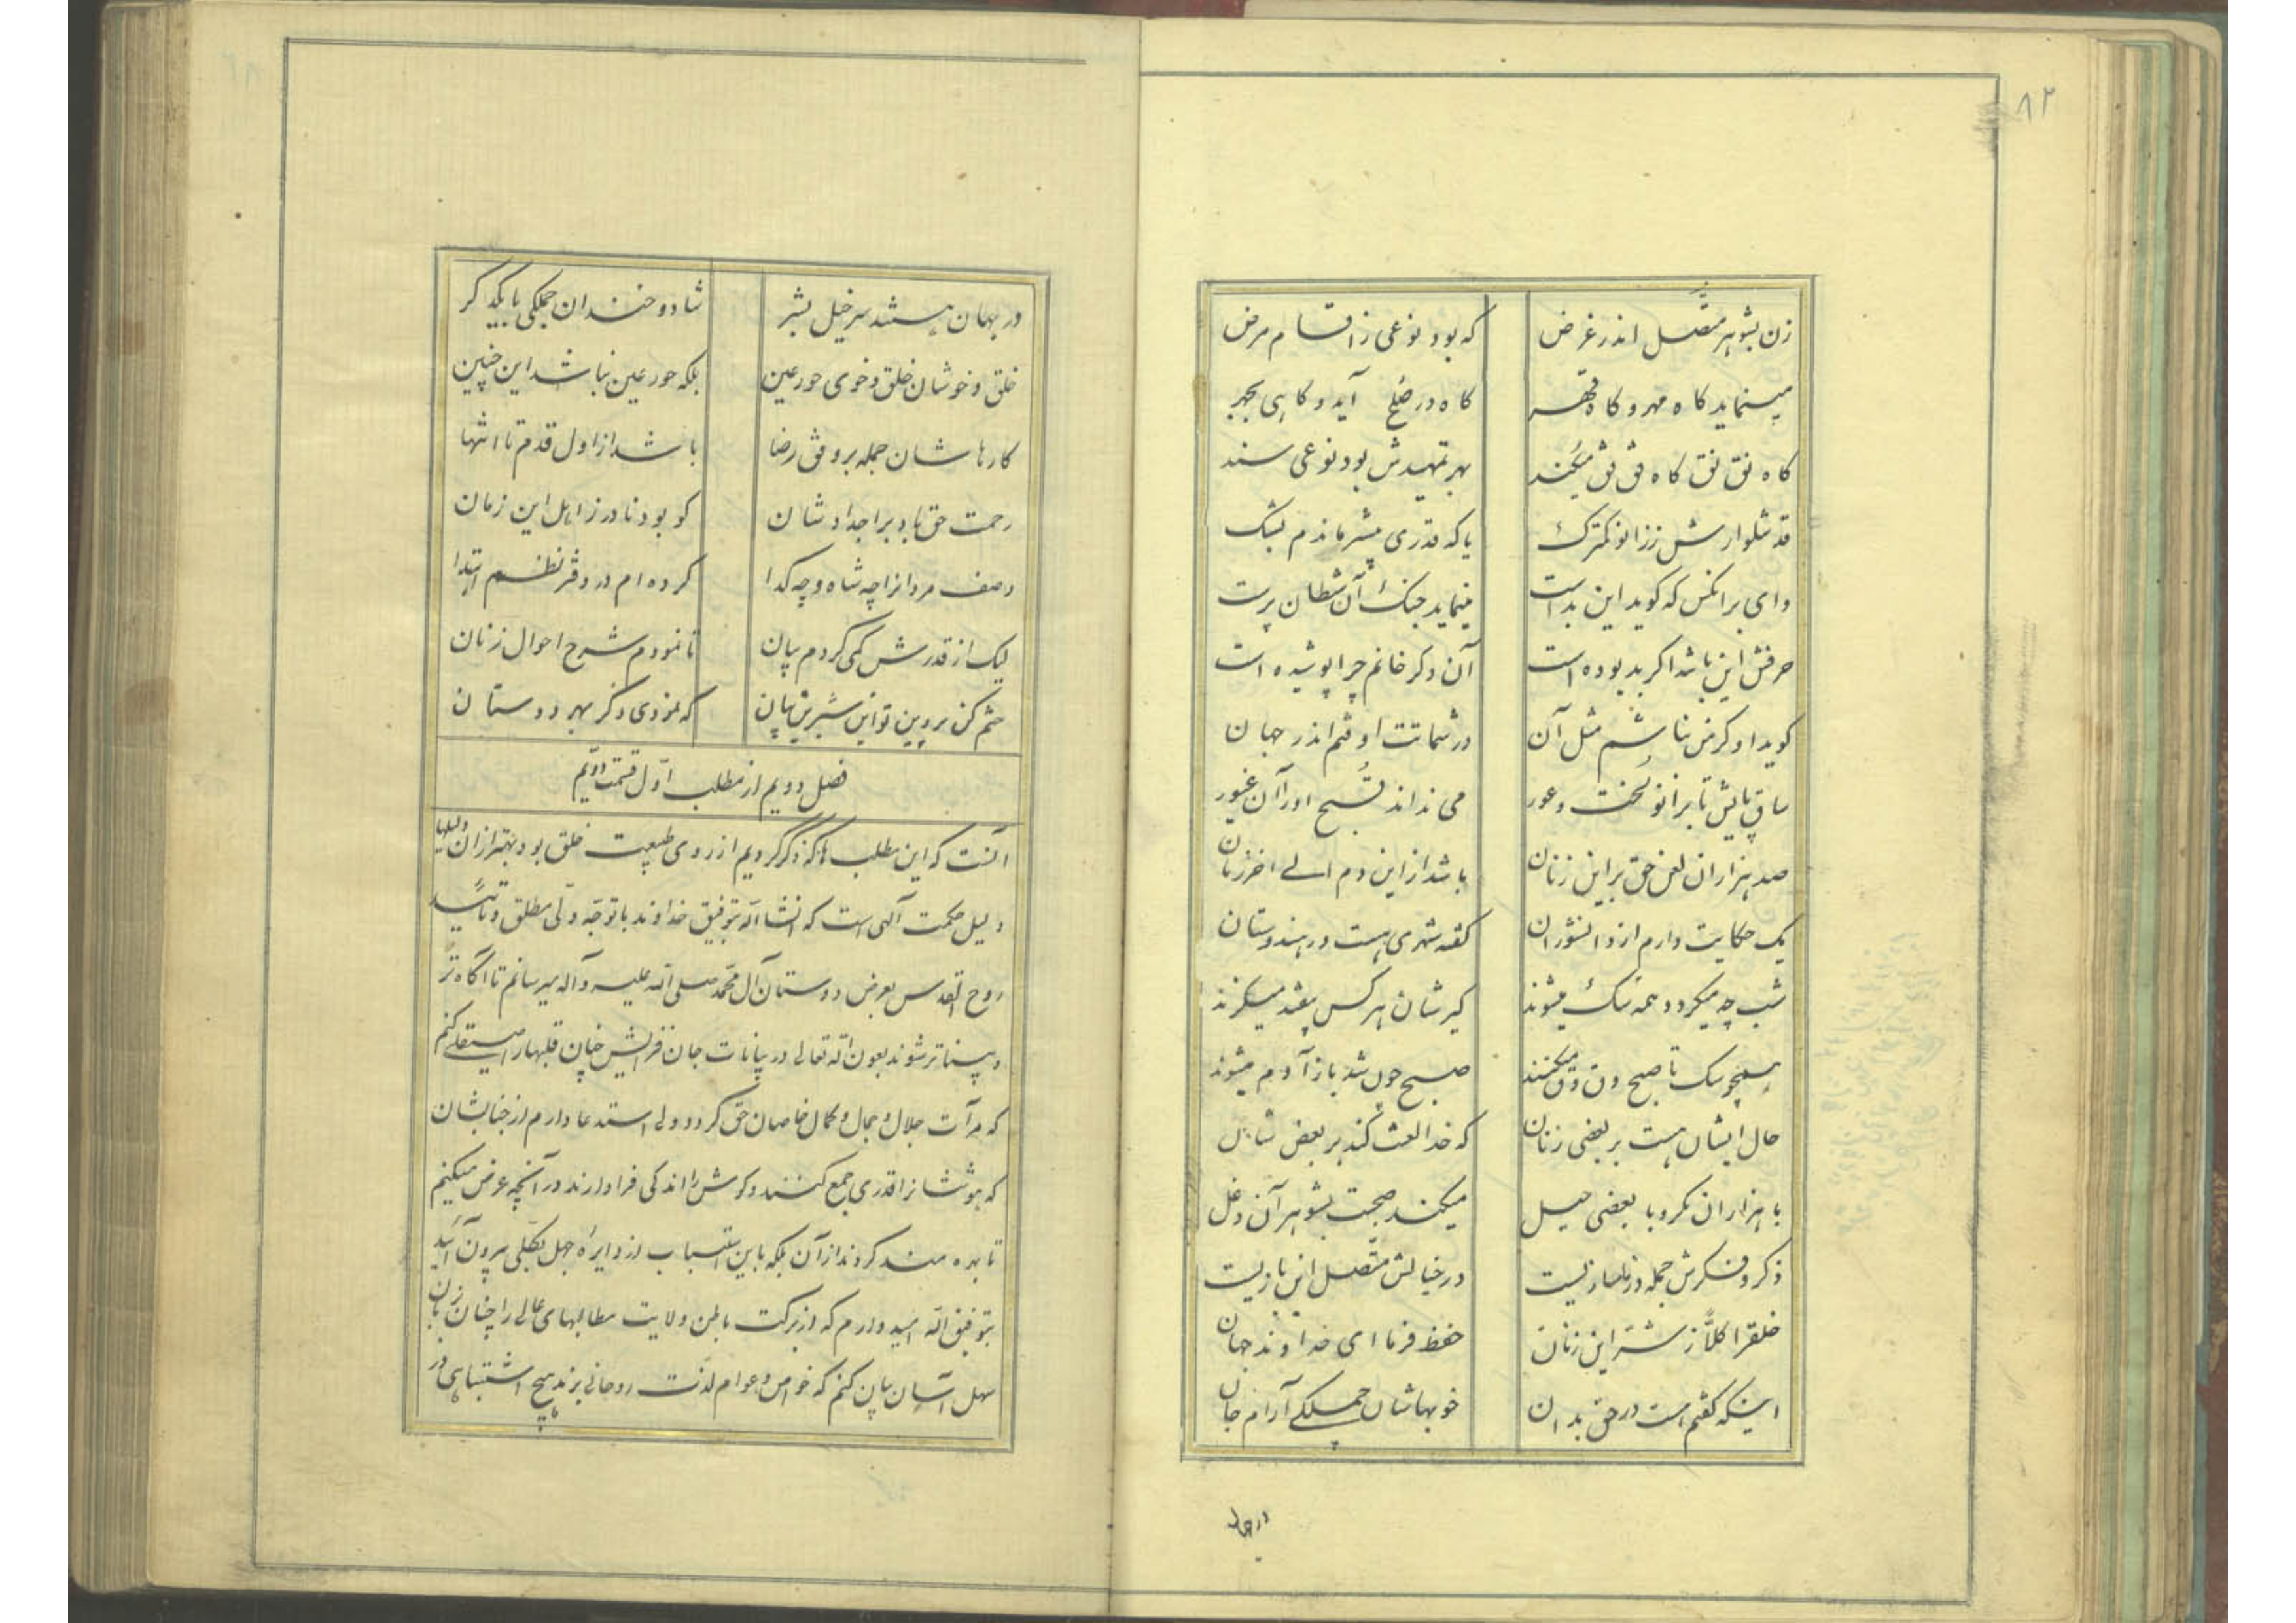 ۸۲
زن بشوهر متّصل اندر غرض که بود نوعی ز اقسام مرض
مینماید کاه مهر و کاه قهر کاه در صُلح آید و کاهی بجهر
کاه نق نق کاه فق فق میکُند بهر تمهیدش بود نوعی سند
قد شلوارش ز زانو کمترک یا که قدری بیشتر ماندم بشک
وای بر انکس که کوید این بد است مینماید جنک آن شطان پرت
حرفش این باشد اکر بد بوده است آن دکر خانم چرا پوشیده است
کوید او کر من نباشم مثل آن در شماتت اوفتم اندر جهان
ساق پایش تا بزانو لُخت و عور می نداند قُبح او را آن غیور
صد هزاران لعن حق بر این زنان باشد از این دم الی اخر زمان
یک حکایت دارم از دانشوران کفته شهری هست در هندوستان
شب چه میکردد همه سک میشوند کیرشان هر کس بیفتد میکزند
همچو سک تا صبح وق وق میکنند صبح چون شد باز آدم میشوند
حال ایشان هست بر بعضی زنان که خدا لعنت کند بر بعض شان
با هزاران مکر و با بعضی حیل میکند صحبت بشوهر آن دغل
ذکر و فکرش جمله در ناسازیست در خیالش متّصل این بازیست
خلقرا کلاً ز شرّ این زنان حفظ فرما ای خداوند جهان
اینکه کفتم هست در حق بدان خوبهاشان جملکی آرام جان
در جهان
در جهان هستند سرخیل بشر شاد و خندان جملکی با یکدکر
خلق و خوشان خلق و خوی حور عین بلکه حور عین نباشد این چنین
کارهاشان جمله بر وفق رضا باشد از اول قدم تا انتها
رحمت حق باد بر اجدادشان کو بود نادر ز اهل این زمان
وصف مردانرا چه شاه و چه کدا کرده ام در دفتر نظم ابتدا
لیک از قدرش کمی کردم بیان تا نمودم شرح احوال زنان
ختم کن پروین تو این شیرین بیان که نمودی ذکر بهر دوستان
فصل دویم از مطلب اوّل قسمت دویّم
آنست که این مطلب ها که ذکر کردیم از روی طبیعت خلق بود بهتر از ان دلیلها
دلیل حکمت آلهی است که انشاالله بتوفیق خداوند با توجّه ولّی مطلق و تأئید
روح القدس بعرض دوستان آل محمّد صلی الله علیه و آله میرسانم تا آکاه تر
و بیناتر شوند بعون الله تعالی در بیانات جان فزایش چنان قلبها را صیقلی کنم
که مرآت جلال و جمال و کمال خاصان حق کردد ولی استدعا دارم از جنابشان
که هوششانرا قدری جمع کنند و کوش را اندکی فرا دارند در آنچه عرض میکنیم
تا بهره مند کردند از آن بلکه باین اسباب از دایرهٔ جهل بکلّی بیرون آیند
بتوفیق الله امید وارم که از برکت باطن ولایت مطالبهای عالی را چنان بزبان
سهل آسان بیان کنم که خواص و عوام لذّت روحانی برند هیچ اشتباهی در